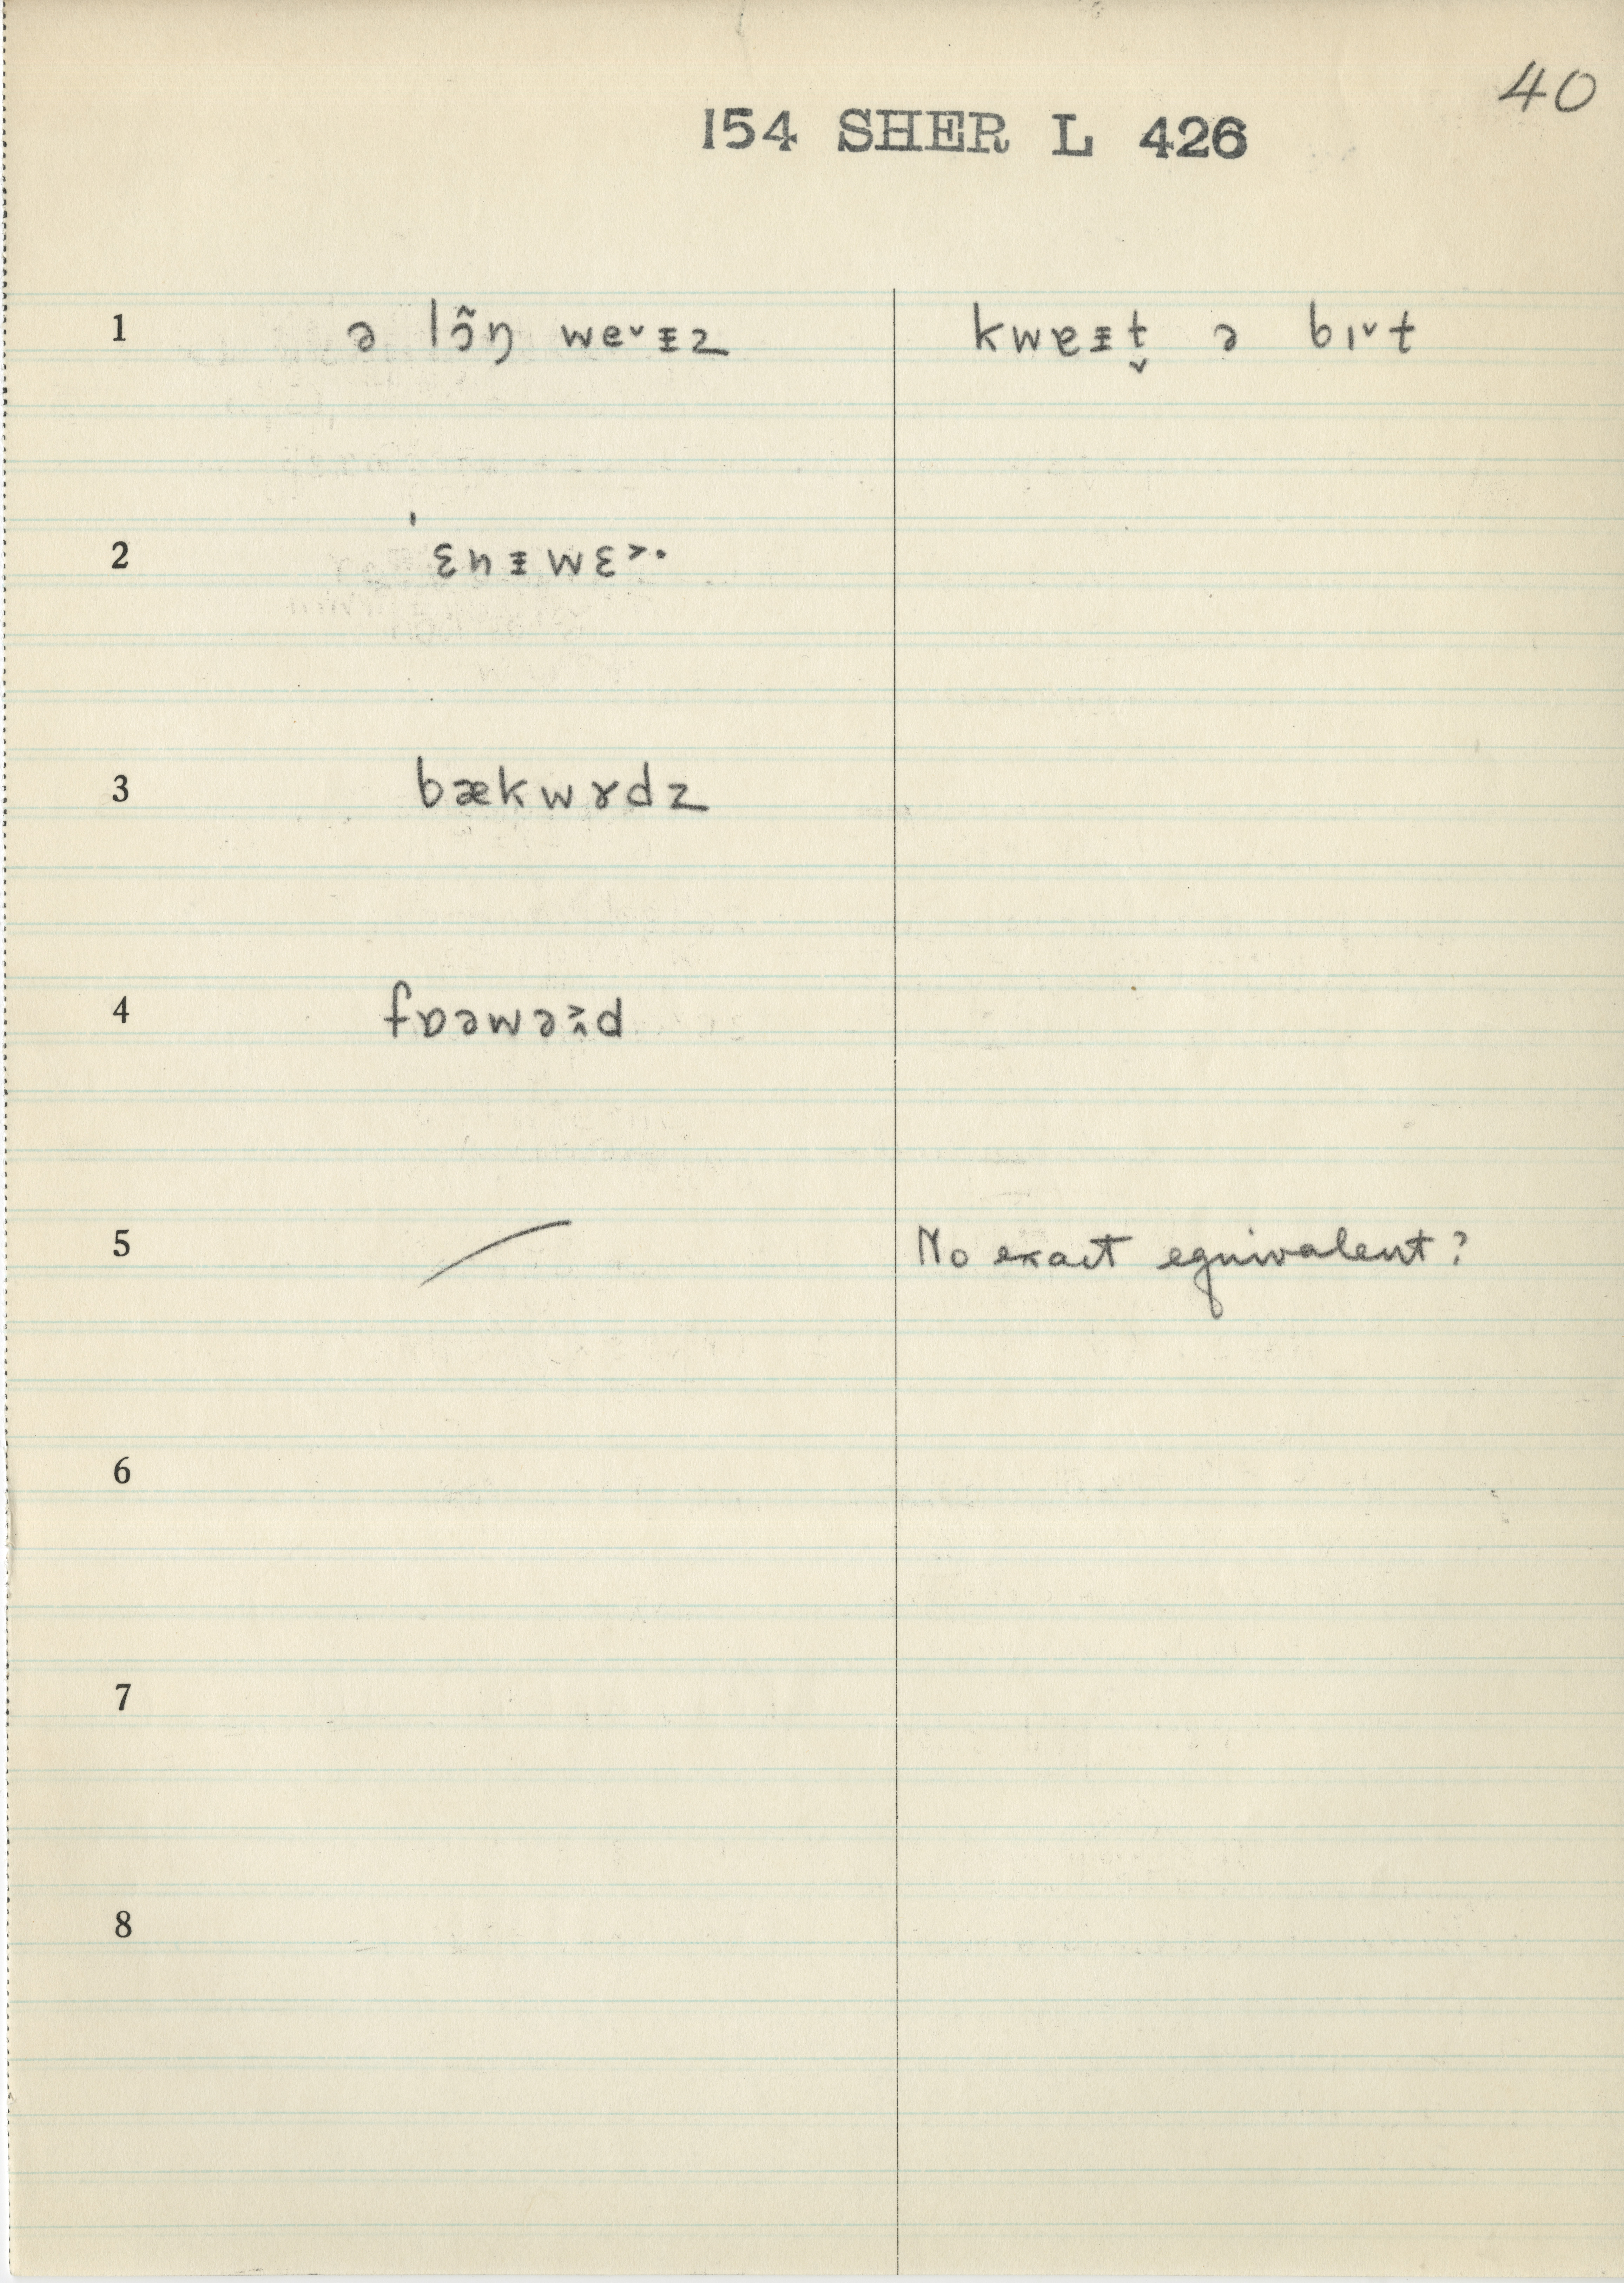 40
154 SHER L 426
1 ə lɔ̃ŋ we˅ᵻz kwɐᵻt̬ ə bɪ˅t
2 ˈɛnᵻwɛ˃·
3 bækwɤdz
4 fɒəwəd
5 No exact equivalent?
6
7
8